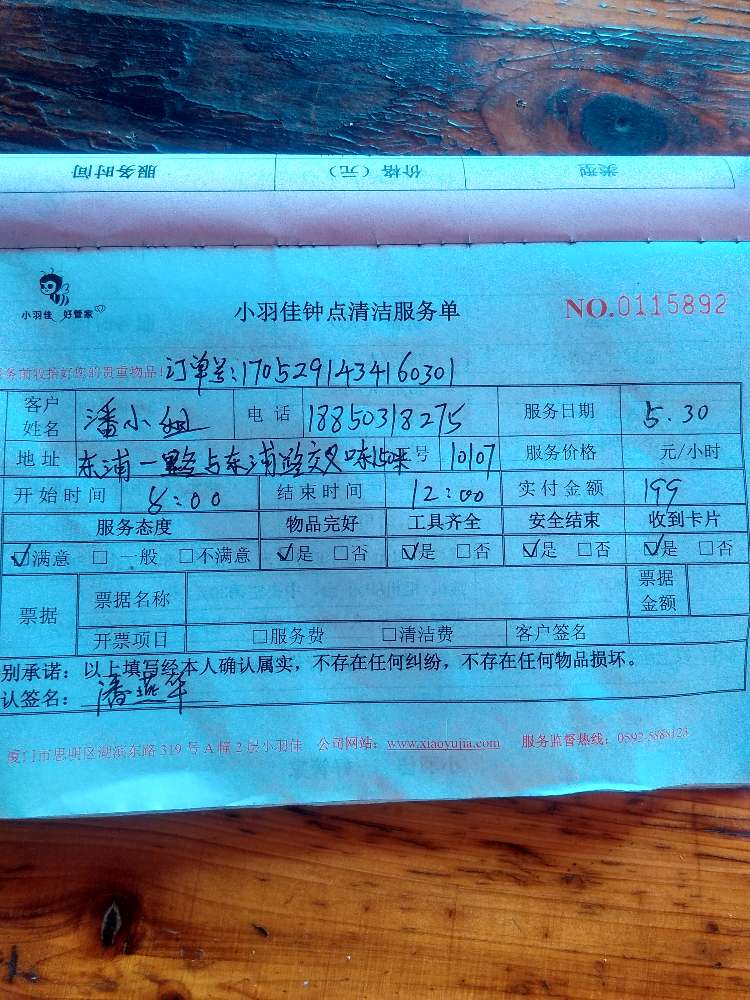 服务时间 价格（元） 类型
小羽佳 好管家
小羽佳钟点清洁服务单 NO.0115892
务前收拾好您的贵重物品! 订单号:1705291434160301
客户姓名 潘小姐 电话 18850318275 服务日期 5.30
地址 东浦一路与东浦路交叉 号 10107 服务价格 元/小时
开始时间 8:00 结束时间 12:00 实付金额 199
服务态度 物品完好 工具齐全 安全结束 收到卡片
☑满意 □一般 □不满意 ☑是 □否 ☑是 □否 ☑是 □否 ☑是 □否
票据 票据名称 票据金额
开票项目 □服务费 □清洁费 客户签名
别承诺：以上填写经本人确认属实，不存在任何纠纷，不存在任何物品损坏。
认签名：潘燕华
厦门市思明区湖滨东路319号A幢2层小羽佳 公司网站：www.xiaoyujia.com 服务监督热线：0592-5888123